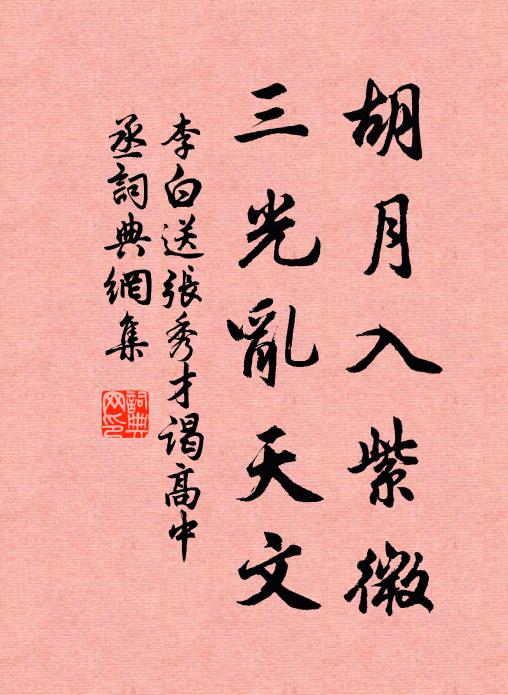 胡月入紫微
三光亂天文
李白送張秀才謁高中
丞詞典網集
詞典
网印